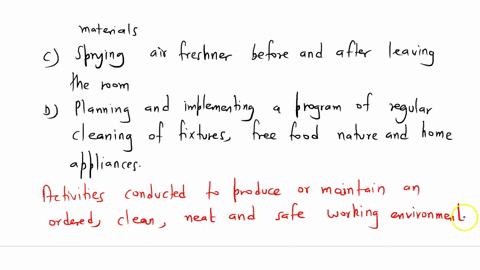 materials
C) Sprying air freshner before and after leaving
the room
D) Planning and implementing a program of regular
cleaning of fixtures, free food nature and home
appliances.
Activities conducted to produce or maintain an
ordered, clean, neat and safe working environment.